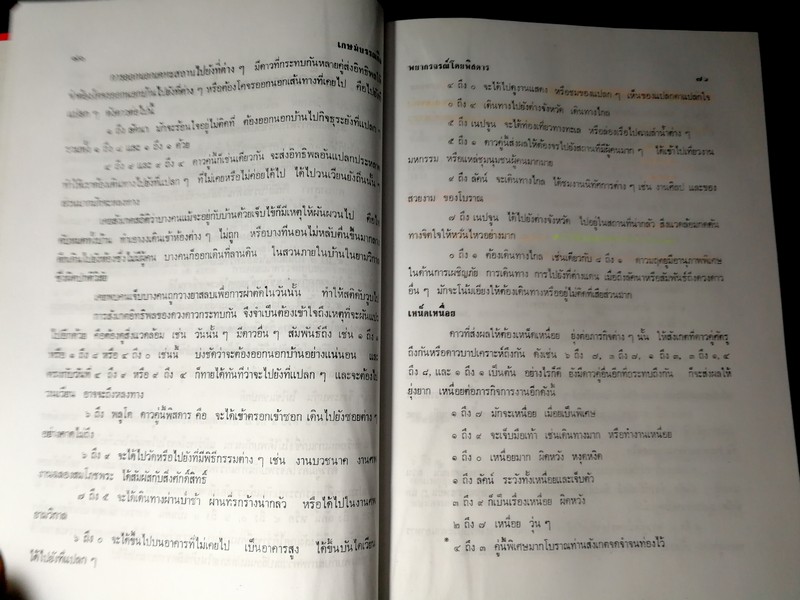 ๘๐
เกษมบรรณกิจ
การออกนอกเคหะสถานไปยังที่ต่าง ๆ มีดาวที่กระทบกันหลายคู่ส่งอิทธิพลให้
แปลก ๆ ดังดาวต่อไปนี้
๑ ถึง ลัคนา มักจะร้อนใจอยู่ไม่ติดที่ ต้องออกนอกบ้านไปกิจธุระยังที่แปลก ๆ
รวมทั้ง ๑ ถึง ๔ และ ๑ ถึง ๑ ด้วย
๔ ถึง ๙ และ ๙ ถึง ๔ ดาวคู่นี้ก็เช่นเดียวกัน จะส่งอิทธิพลอันแปลกประหลาด
ทำให้เราต้องเดินทางไปยังที่แปลก ๆ ที่ไม่เคยหรือไม่ค่อยได้ไป ได้ไปวนเวียนยังถิ่นนั้น ๆ
ส่วนมากมักจะหลงทาง
เคยสังเกตสถิติว่าบางคนแม้จะอยู่กับบ้านด้วยเจ็บไข้ก็มีเหตุให้ผันผวนไป คือ
เคยพบคนเจ็บบางคนถูกวางยาสลบเพื่อการผ่าตัดในวันนั้น ทำให้สติดับวูบไป
การสังเกตอิทธิพลของดวงดาวกระทบกัน จึงจำเป็นต้องเข้าใจถึงเหตุที่จะผันแปร
ไปอีกด้วย คือต้องดูสิ่งแวดล้อม เช่น วันนั้น ๆ มีดาวอื่น ๆ สัมพันธ์ถึง เช่น ๑ ถึง ๑
หรือ ๑ ถึง ๔ หรือ ๔ ถึง ๐ เช่นนี้ บ่งชัดว่าจะต้องออกนอกบ้านอย่างแน่นอน และ
กระทบกับวันที่ ๔ ถึง ๙ หรือ ๙ ถึง ๔ ก็ทายได้ทันทีว่าจะไปยังที่แปลก ๆ และจะต้องไป
วนเวียน อาจจะถึงหลงทาง
๖ ถึง พลูโต ดาวคู่นี้พิสดาร คือ จะได้เข้าตรอกเข้าซอก เดินไปยังซอยต่าง ๆ
อย่างคาดไม่ถึง
๖ ถึง ๙ จะได้ไปวัดหรือไปยังที่มีพิธีกรรมต่าง ๆ เช่น งานบวชนาค งานศพ
งานฉลองสมโภชพระ ได้สัมผัสกับสิ่งศักดิ์สิทธิ์
๗ ถึง ๕ จะได้เดินทางผ่านป่าช้า ผ่านที่รกร้างน่ากลัว หรือได้ไปในงานศพ
ยามวิกาล
๖ ถึง ๐ จะได้ขึ้นไปบนอาคารที่ไม่เคยไป เป็นอาคารสูง ได้ขึ้นบันไดเวียน
ได้ไปยังที่แปลก ๆ
พยากรณ์โดยพิสดาร
๘๑
๔ ถึง ๐ จะได้ไปดูงานแสดง หรือชมของแปลก ๆ เห็นของแปลกตาแปลกใจ
๐ ถึง ๔ เดินทางไปยังต่างจังหวัด เดินทางไกล
๕ ถึง เนปจูน จะได้ท่องเที่ยวทางทะเล หรือล่องเรือไปตามลำน้ำต่าง ๆ
๕ ถึง ๑ ดาวคู่นี้ส่งผลให้ต้องจรไปยังสถานที่มีผู้คนมาก ๆ ได้เข้าไปเที่ยวงาน
มหกรรม หรือแหล่งชุมนุมชนผู้คนมากมาย
๙ ถึง ลัคน์ จะเดินทางไกล ได้ชมงานนิทัศการต่าง ๆ เช่น งานศิลป และของ
สวยงาม ของโบราณ
๗ ถึง เนปจูน ได้ไปยังต่างจังหวัด ไปอยู่ในสถานที่น่ากลัว สิ่งแวดล้อมกดดัน
ทางจิตใจให้หวั่นไหวอย่างมาก
๐ ถึง ๑ ต้องเดินทางไกล เช่นเดียวกับ ๔ ถึง ๑ ดาวมฤตยูมีอานุภาพพิเศษ
ในด้านการเผชิญภัย การเดินทาง การไปยังที่ต่างแดน เมื่อถึงลัคนาหรือสัมพันธ์ถึงดวงดาว
อื่น ๆ มักจะโน้มเอียงให้ต้องเดินทางหรืออยู่ไม่ติดที่เสียส่วนมาก
เหน็ดเหนื่อย
ดาวที่ส่งผลให้ต้องเหน็ดเหนื่อย ยุ่งต่อภารกิจต่าง ๆ นั้น ให้สังเกตที่ดาวคู่ศัตรู
ถึงกันหรือดาวบาปเคราะห์ถึงกัน ดังเช่น ๖ ถึง ๗, ๓ ถึง ๗, ๑ ถึง ๓, ๓ ถึง ๑, ๔
ถึง ๘, และ ๑ ถึง ๑ เป็นต้น อย่างไรก็ดี ยังมีดาวคู่อื่นอีกที่กระทบถึงกัน ก็จะส่งผลให้
ยุ่งยาก เหนื่อยต่อภารกิจการงานอีกดังนี้
๑ ถึง ๗ มักจะเหนื่อย เมื่อยเป็นพิเศษ
๑ ถึง ๙ จะเจ็บมือเท้า เช่นเดินทางมาก หรือทำงานเหนื่อย
๑ ถึง ๐ เหนื่อยมาก ผิดหวัง หงุดหงิด
๑ ถึง ลัคน์ ระวังทั้งเหนื่อยและเจ็บตัว
๓ ถึง ๙ ก็เป็นเรื่องเหนื่อย ผิดหวัง
๒ ถึง ๗ เหนื่อย วุ่น ๆ
* ๔ ถึง ๓ คู่นี้พิเศษมากโบราณท่านสังเกตจดจำจนท่องไว้